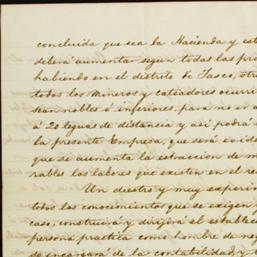 concluida que sea la Hacienda y est
deberá aumentar segun todas las pro
habiendo en el distrito de Tasco, otr
todos los Mineros y cateadores ocurri
sean nobles ó inferiores, para no ir a
á 20 leguas de distancia y asi podrá
la presente Empresa, que será evide
que se aumenta la estraccion de m
rables las labores que existen en el re
Un diestro y muy experim
todos los conocimientos que se exigen
caso, construirá y dirijirá el establec
persona practica como hombre de neg
se encargará de la contabilidad, y